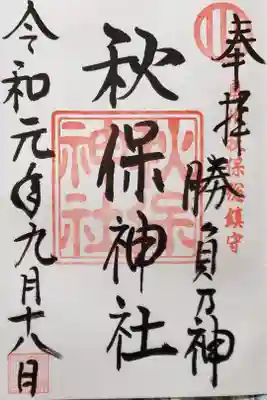 奉拝
勝負乃神
秋保神社
令和元年九月十八日
秋保
神社
保総鎮守